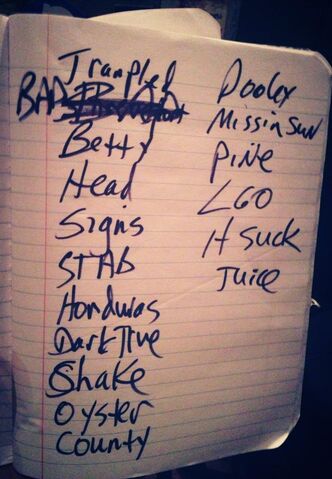 Trampled
BAD
Betty
Head
Signs
STAb
Honduras
Dark Tive
Shake
Oyster
County
Dooley
Missin Sun
PiNe
LGO
H Suck
Juice